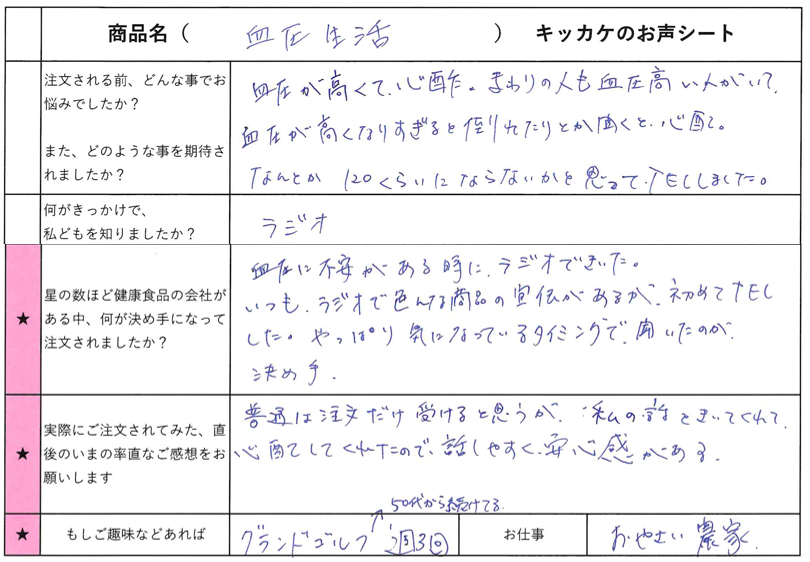 商品名（ 血圧生活 ） キッカケのお声シート
注文される前、どんな事でお
悩みでしたか？
また、どのような事を期待さ
れましたか？
血圧が高くて、心配。まわりの人も血圧高い人がいて、
血圧が高くなりすぎると倒れたりとか聞くと、心配。
なんとか 120くらいにならないかと思って、TELしました。
何がきっかけで、
私どもを知りましたか？
ラジオ
★
星の数ほど健康食品の会社が
ある中、何が決め手になって
注文されましたか？
血圧に不安がある時に、ラジオできいた。
いつも、ラジオで色んな商品の宣伝があるが、初めてTEL
した。やっぱり気になっているタイミングで、聞いたのが、
決め手。
★
実際にご注文されてみた、直
後のいまの率直なご感想をお
願いします
普通は注文だけ受けると思うが、私の話をきいてくれて、
心配してくれたので、話しやすく、安心感がある。
★
もしご趣味などあれば
50代から続けてる
グランドゴルフ 週3回
お仕事
おやさい農家